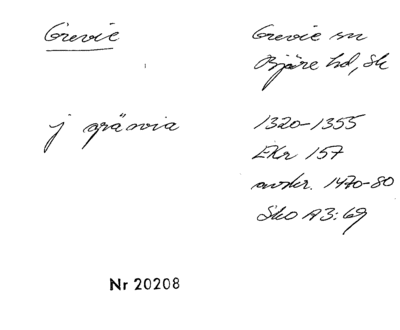 Grevie
Grevie sn
Bjäre hd, Sk
j gräwia
1320-1355
LKr 157
avskr. 1470-80
Sko A3:69
Nr 20208